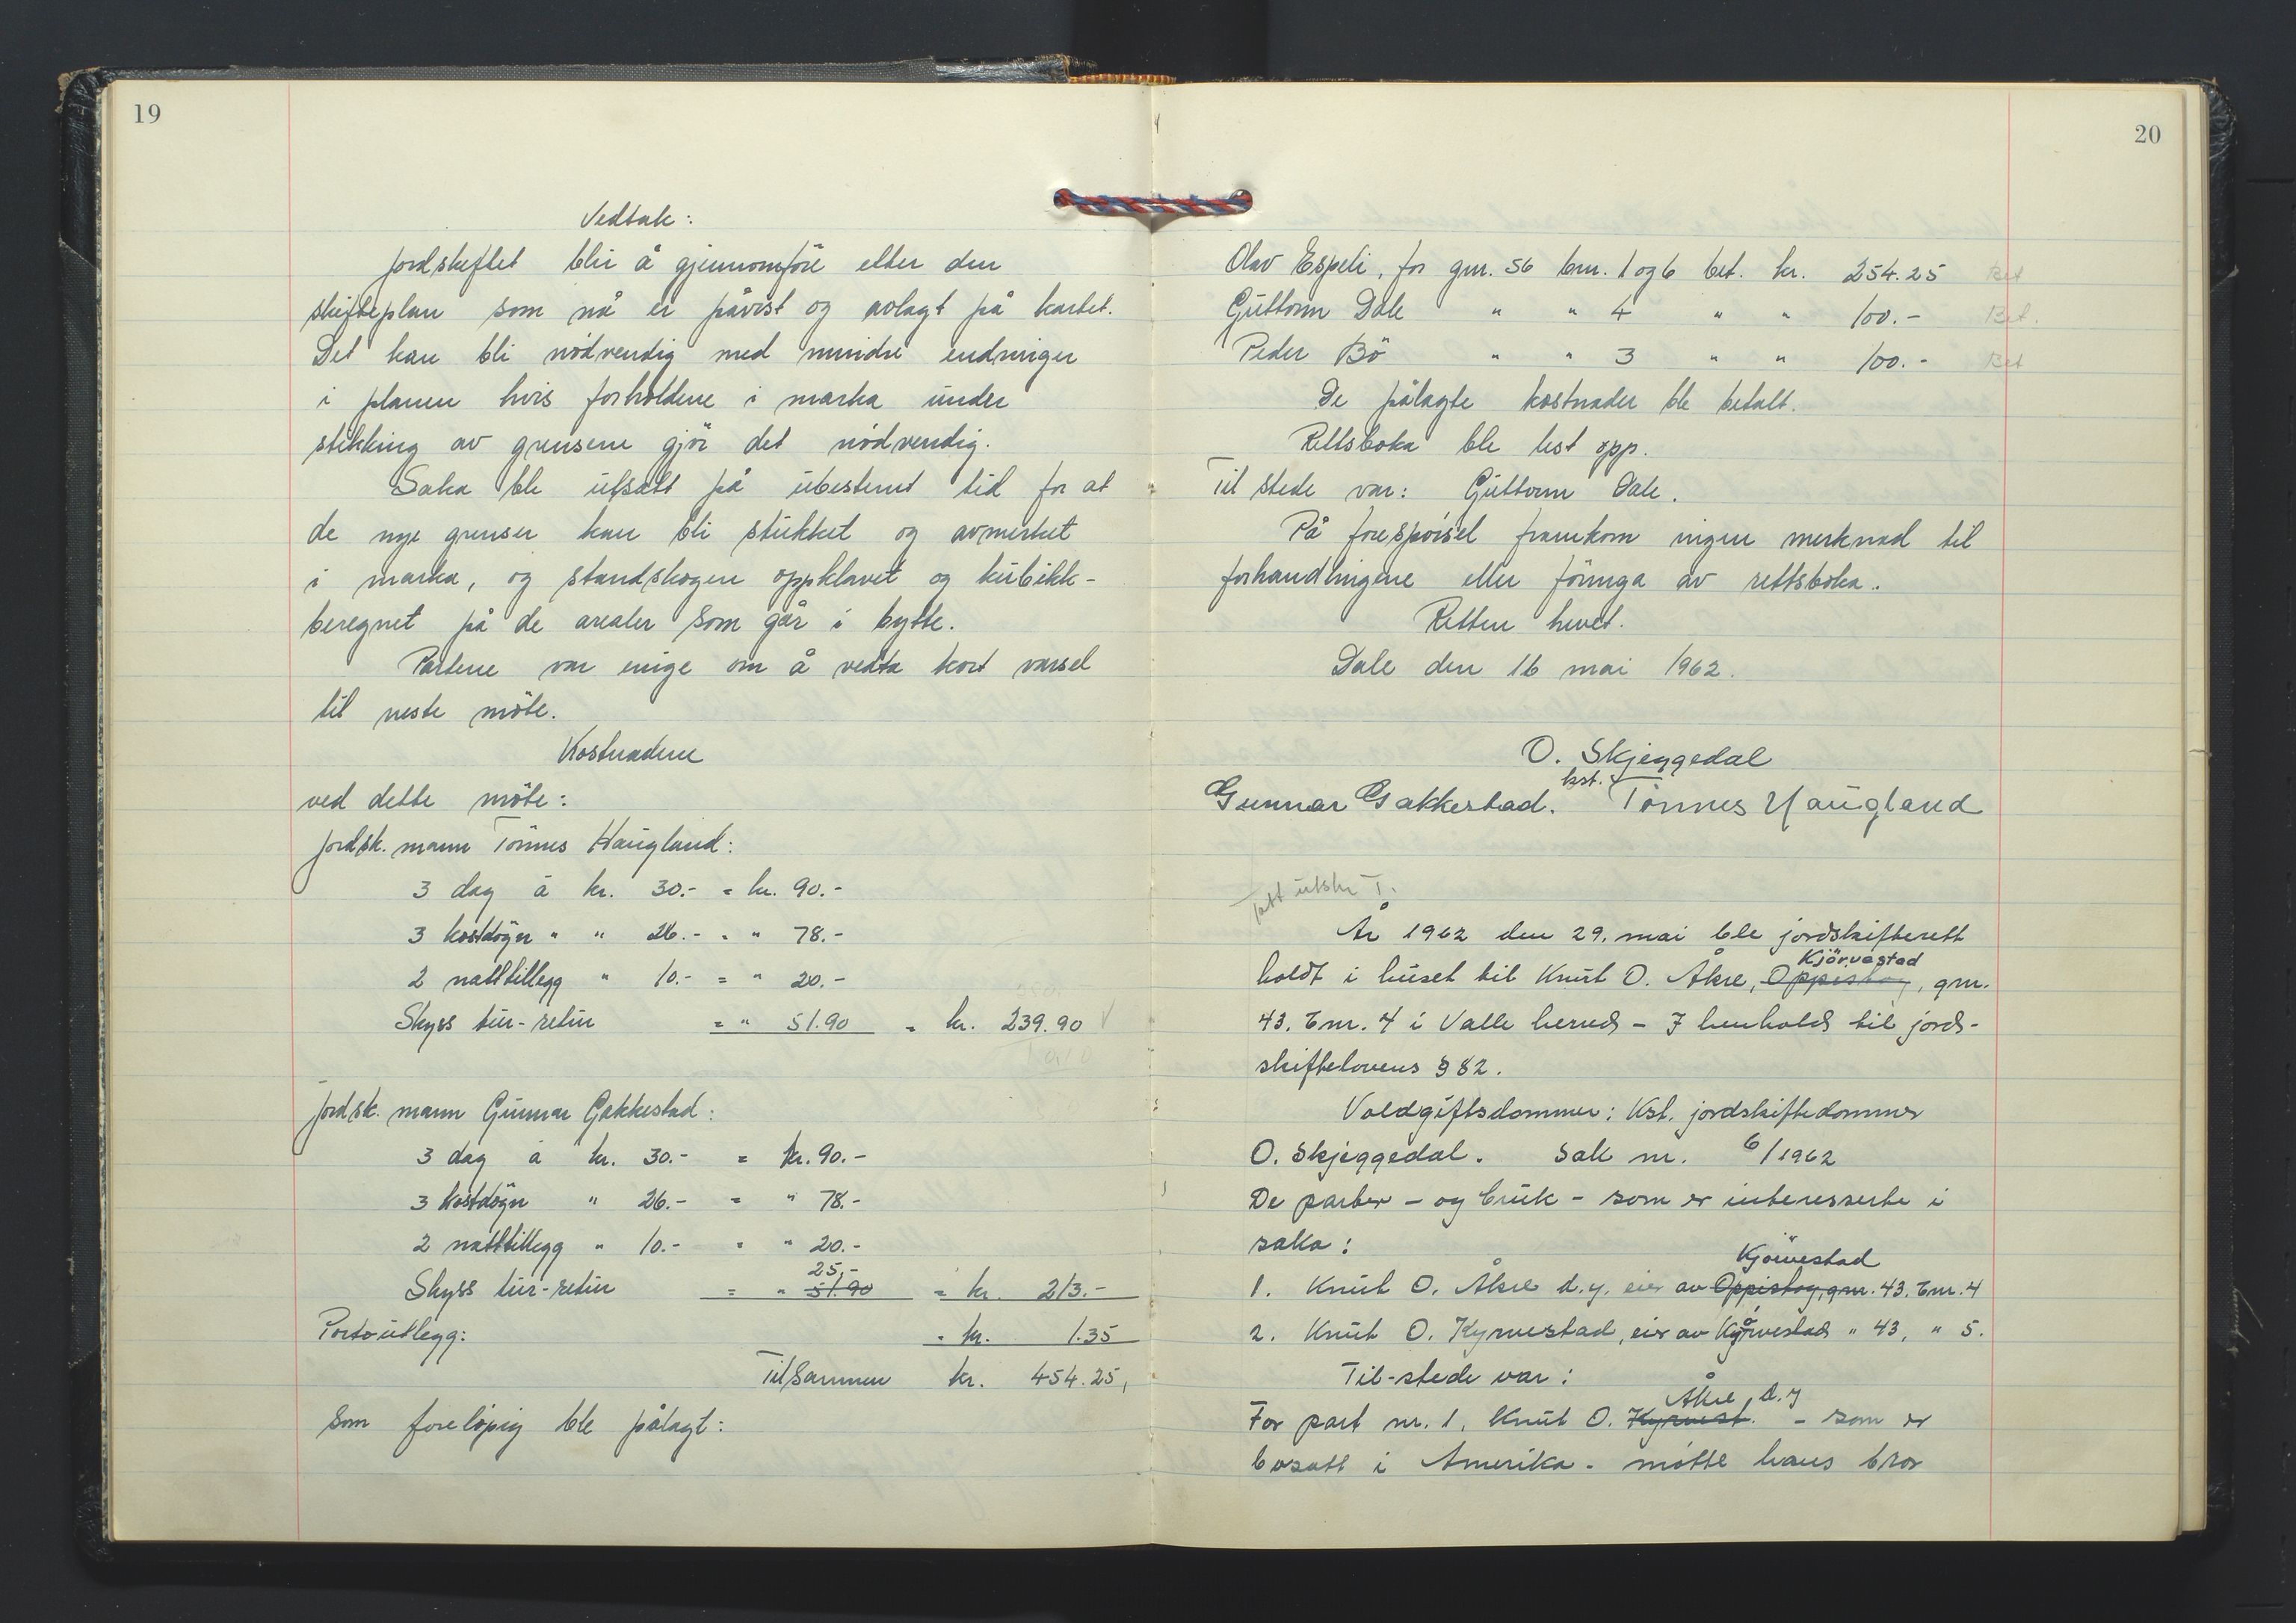 19
Vedtak:
Jordskeftet blir å gjennomföre etter den
skifteplan som nå er påvist og avlagt på kartet.
Det kan bli nödvendig med mindre endringer
i planen hvis forholdene i marka under
stikking av grensene gjör det nödvendig.
Saka ble utsatt på ubestemt tid for at
de nye grenser kan bli stukket og avmerket
i marka, og standskogen oppklavet og kubikk-
beregnet på de arealer som går i bytte.
Partene var enige om å vedta kort varsel
til neste möte.
Kostnadene
ved dette möte:
Jordsk. mann Tönnes Haugland:
3 dag à kr. 30.- = kr. 90.-
3 kostdögn " " 26.- = " 78.-
2 natttillegg " 10.- = " 20.-
Skyss tur-retur = " 51.90 = kr. 239.90
Jordsk. mann Gunnar Gakkestad:
3 dag à kr. 30.- = kr. 90.-
3 kostdögn " 26.- = " 78.-
2 natttillegg " 10.- = " 20.-
25,-
Skyss tur-retur = " 51.90 = kr. 213.-
Portoutlegg: = kr. 1.35
Tilsammen kr. 454.25,
som forelöpig ble pålagt:
20
Olav Espeli, for gnr. 56 bnr. 1 og 6 bet. kr. 254.25 Bet
Guttorm Dale " " 4 " " 100.- Bet.
Peder Bö " " 3 " " 100.- Bet
De pålagte kostnader ble betalt.
Rettsboka ble lest opp.
Til stede var: Guttorm Dale.
På forespörsel framkom ingen merknad til
forhandlingene eller föringa av rettsboka.
Retten hevet.
Dale den 16 mai 1962.
O. Skjeggedal
kst.
Gunnar Gakkestad. Tönnes Haugland
Tatt utskr.
År 1962 den 29. mai ble jordskifterett
Kjörvestad
holdt i huset til Knut O. Åkre, Oppistog, gnr.
43. bnr. 4 i Valle herred - I henhold til jord-
skiftelovens § 82.
Voldgiftsdommer: Kst. jordskiftedommer
O. Skjeggedal. Sak nr. 6/1962
De parter - og bruk - som er interesserte i
saka:
Kjörvestad
1. Knut O. Åkre d.y. eier av Oppistog, gnr. 43. bnr. 4
2. Knut O. Kyrvestad, eier av Kyrvestad " 43, " 5.
Til-stede var:
Åkre, d.y
For part nr. 1. Knut O. Kyrvest. - som er
bosatt i Amerika - mötte hans bror